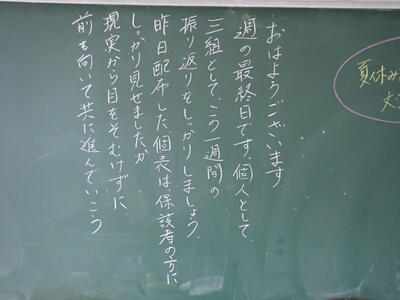 おはようございます
週の最終日です。個人として、
三組として、この一週間の
振り返りをしっかりしましょう。
昨日配布した個表は保護者の方に
しっかり見せましたか
現実から目をそむけずに
前を向いて共に進んでいこう
夏休み